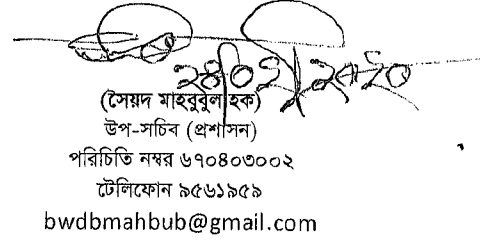 ২৪/০২/২০২০
(সৈয়দ মাহবুবুল হক)
উপ-সচিব (প্রশাসন)
পরিচিতি নম্বর ৬৭০৪০৩০০২
টেলিফোন ৯৫৬১৯৫৯
bwdbmahbub@gmail.com